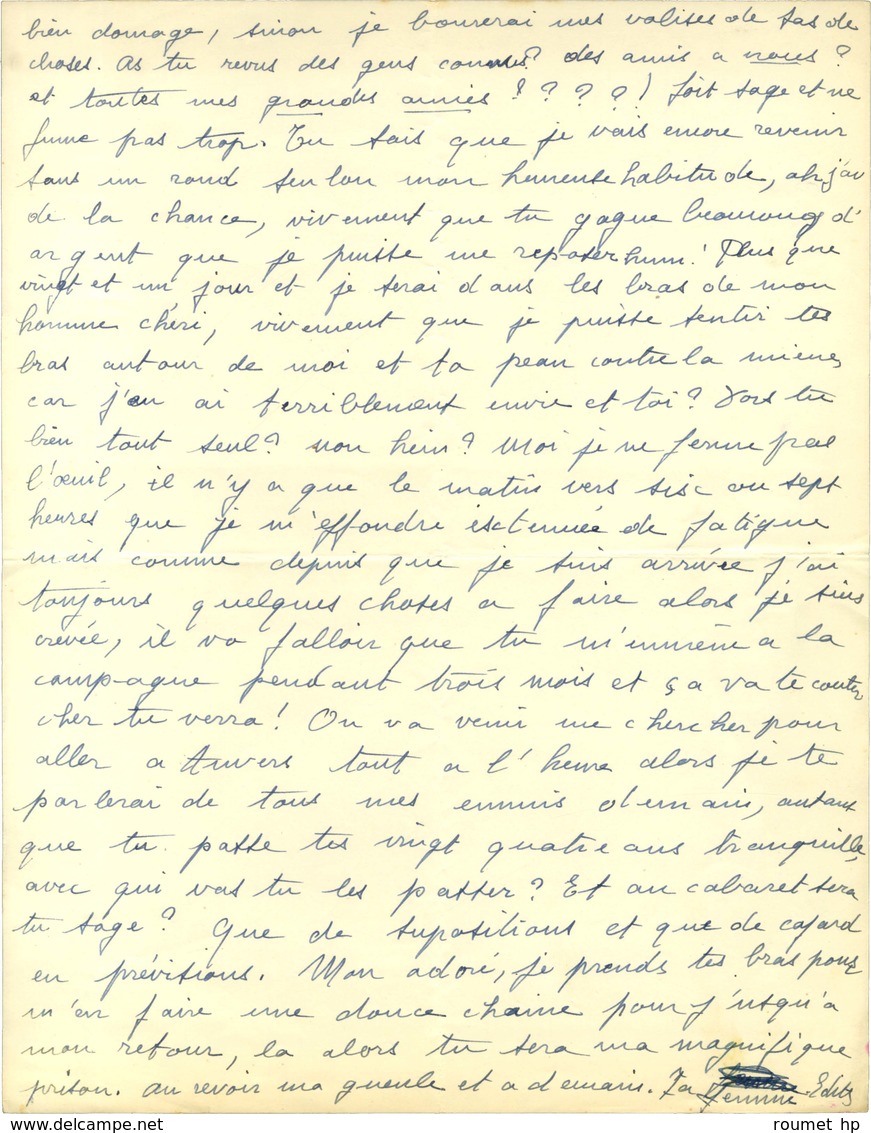 bien domage, sinon je bourerai mes valises de tas de
choses. As tu revus des gens connus? des amis a nous?
et toutes mes grandes amies? ? ? ?! Soit sage et ne
fume pas trop. Tu sais que je vais encore revenir
sans un rond seulon mon heureuse habitude, ah j'ai
de la chance, vivement que tu gagne beaucoup d'
argent que je puisse me reposer hum! Plus que
vingt et un jour et je serai dans les bras de mon
homme chéri, vivement que je puisse sentir tes
bras autour de moi et ta peau contre la miene
car j'en ai terriblement envie et toi? Dors tu
bien tout seul? non hein? Moi je ne ferme pas
l'œuil, il n'y a que le matin vers sisc ou sept
heures que je m'effondre esctenuée de fatigue
mais comme depuis que je suis arrivée j'ai
toujours quelques choses a faire alors je suis
crevée, il va falloir que tu m'emmène a la
campagne pendant trois mois et ça va te couter
cher tu verra! On va venir me chercher pour
aller a Anvers tout a l'heure alors je te
parlerai de tous mes ennuis demain, autant
que tu passe tes vingt quatre ans tranquille,
avec qui vas tu les passer? Et au cabaret sera
tu sage? Que de supositions et que de cafard
en prévisions. Mon adoré, je prends tes bras pour
m'en faire une douce chaine pour j'usqu'a
mon retour, la alors tu sera ma magnifique
prison. Au revoir ma gueule et a demain. Ta femme Edith
roumet hp